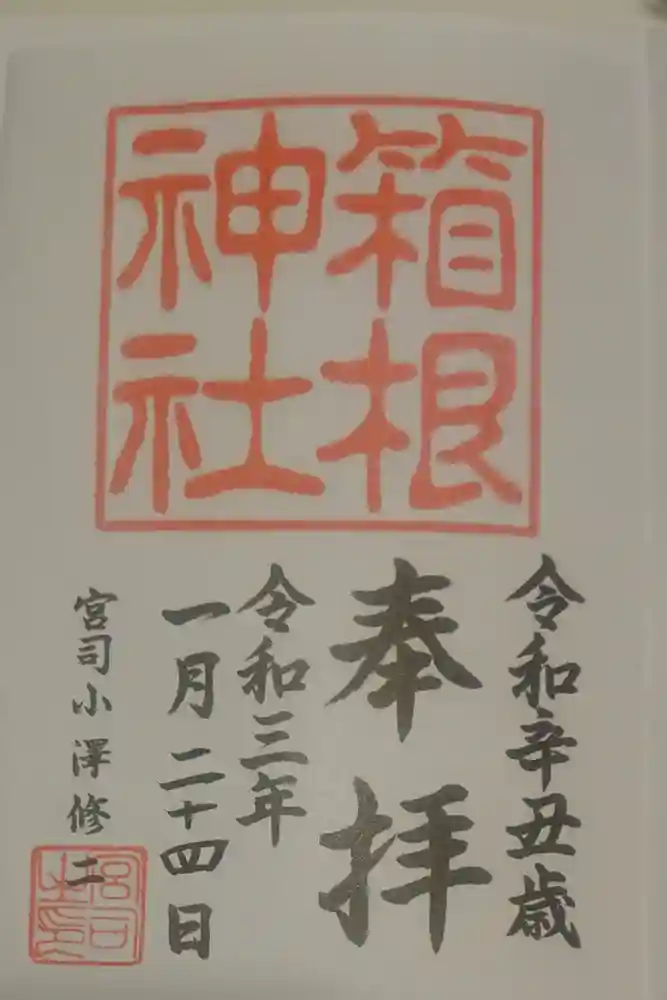 箱根
神社
令和辛丑歳
奉拝
令和三年
一月二十四日
宮司小澤修二
宮司
之印